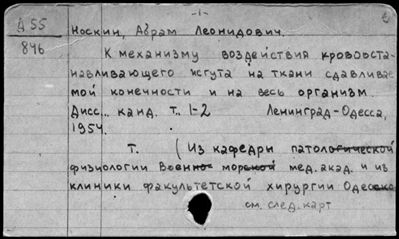 -1-
Д 55
846
Носкин, Абрам Леонидович.
К механизму воздействия кровооста-
навливающего жгута на ткани сдавливае-
мой конечности и на весь организм.
Дисс... канд. т.. 1-2 Ленинград-Одесса,
1954.
т. (Из кафедры патологической
физиологии Военно морской мед. акад. и из
клиники факультетской хирургии Одесско
см. след. карт